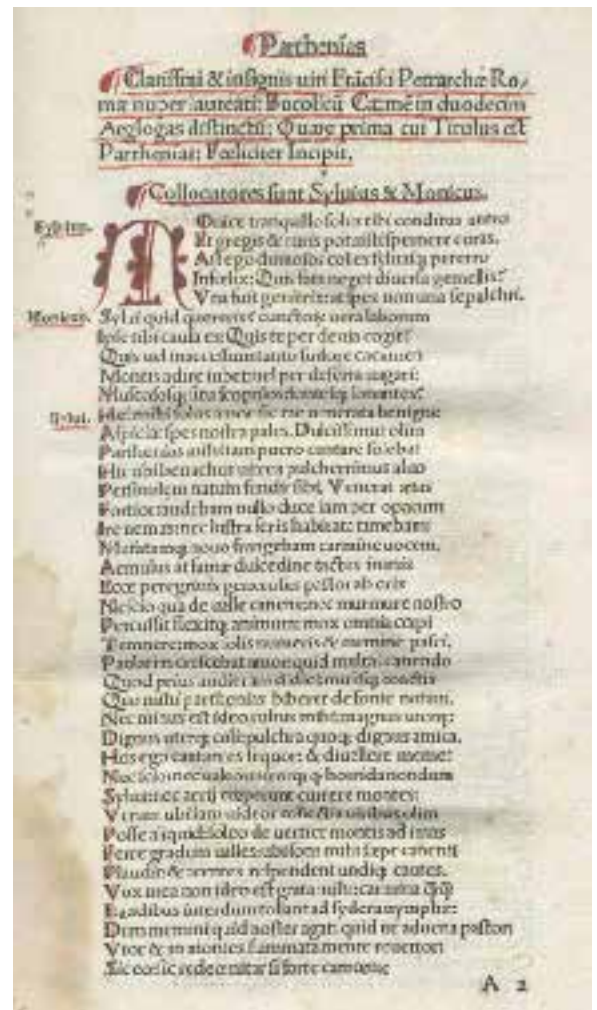 Parthenias
Clarissimi & insignis uiri Frācisci Petrarchæ Ro,
mæ nuper laureati: Bucolicū Carmē in duodecim
Aeglogas distinctū: Quare prima cui Titulus est
Parthenias: Fœliciter Incipit.
Collocatores sunt Syluius & Monicus.
tranquillo solus tibi conditus antro
Et gregis & ruris potuisti spernere curas.
Ast ego dumosos colles siluasq; pererro
Infelix: Quis fata neget diuersa gemellis?
Vna fuit genitrix: at spes non una sepulchri.
Monicus. Sylui quid quereris? cunctorū uera laborum
Ipse tibi causa es: Quis te per deuia cogit?
Quis uel inaccessum tanto sudore cacumen
Montis adire iubet: uel per deserta uagari:
Sylui. amor sic me
Aspiciat: spes nostra pales. Dulcissimus olim
Parthenias mihi iam puero cantare solebat
Hic ubi benachus uitrea pulcherrimus aluo
Persimilem natum fundit sibi. Venerat ætas
Fortior: audebam nullo duce iam per opacum
Ire nemus: nec lustra feris habitata timebam:
Mutatamq; nouo frangebam carmine uocem.
Aemulus at famæ dulcedine tactus inanis
Ecce peregrinis generosus pastor ab oris
Nescio qua de ualle canens: nec murmure nostro
Percussit flexitq; animum: mox omnia cœpi
Temnere: mox solis numeris & carmine pasci.
Paulatim crescebat amor quid multa: canendo
Quod prius audieram didici
Quo mihi parthenias biberet de fonte notaui.
Nec minus est ideo cultus mihi: magnus uterq;
Dignus uterq; coli: pulchra quoq; dignus amica.
Hos ego cantantes sequor: & diuellere memet
Nec scio nec ualeo: horrida nondum
Sylua: nec aerii cœperunt currere montes:
Verum ubi iam uideor uiribus olim
Posse aliquid: soleo de uertice montis ad imas
Ferre gradum ualles: ubi fons mihi sæpe canenti
Plaudit & arentes respondent undiq; cautes.
Vox mea non ideo est grata mihi: carmina
interdum tollant ad sydera nymphæ:
Dum memini quid noster agat: quid ue aduena pastor:
Vror & in montes flammata mente reuertor:
Sic eo: sic redeo: nitar si forte camœnæ
A 2